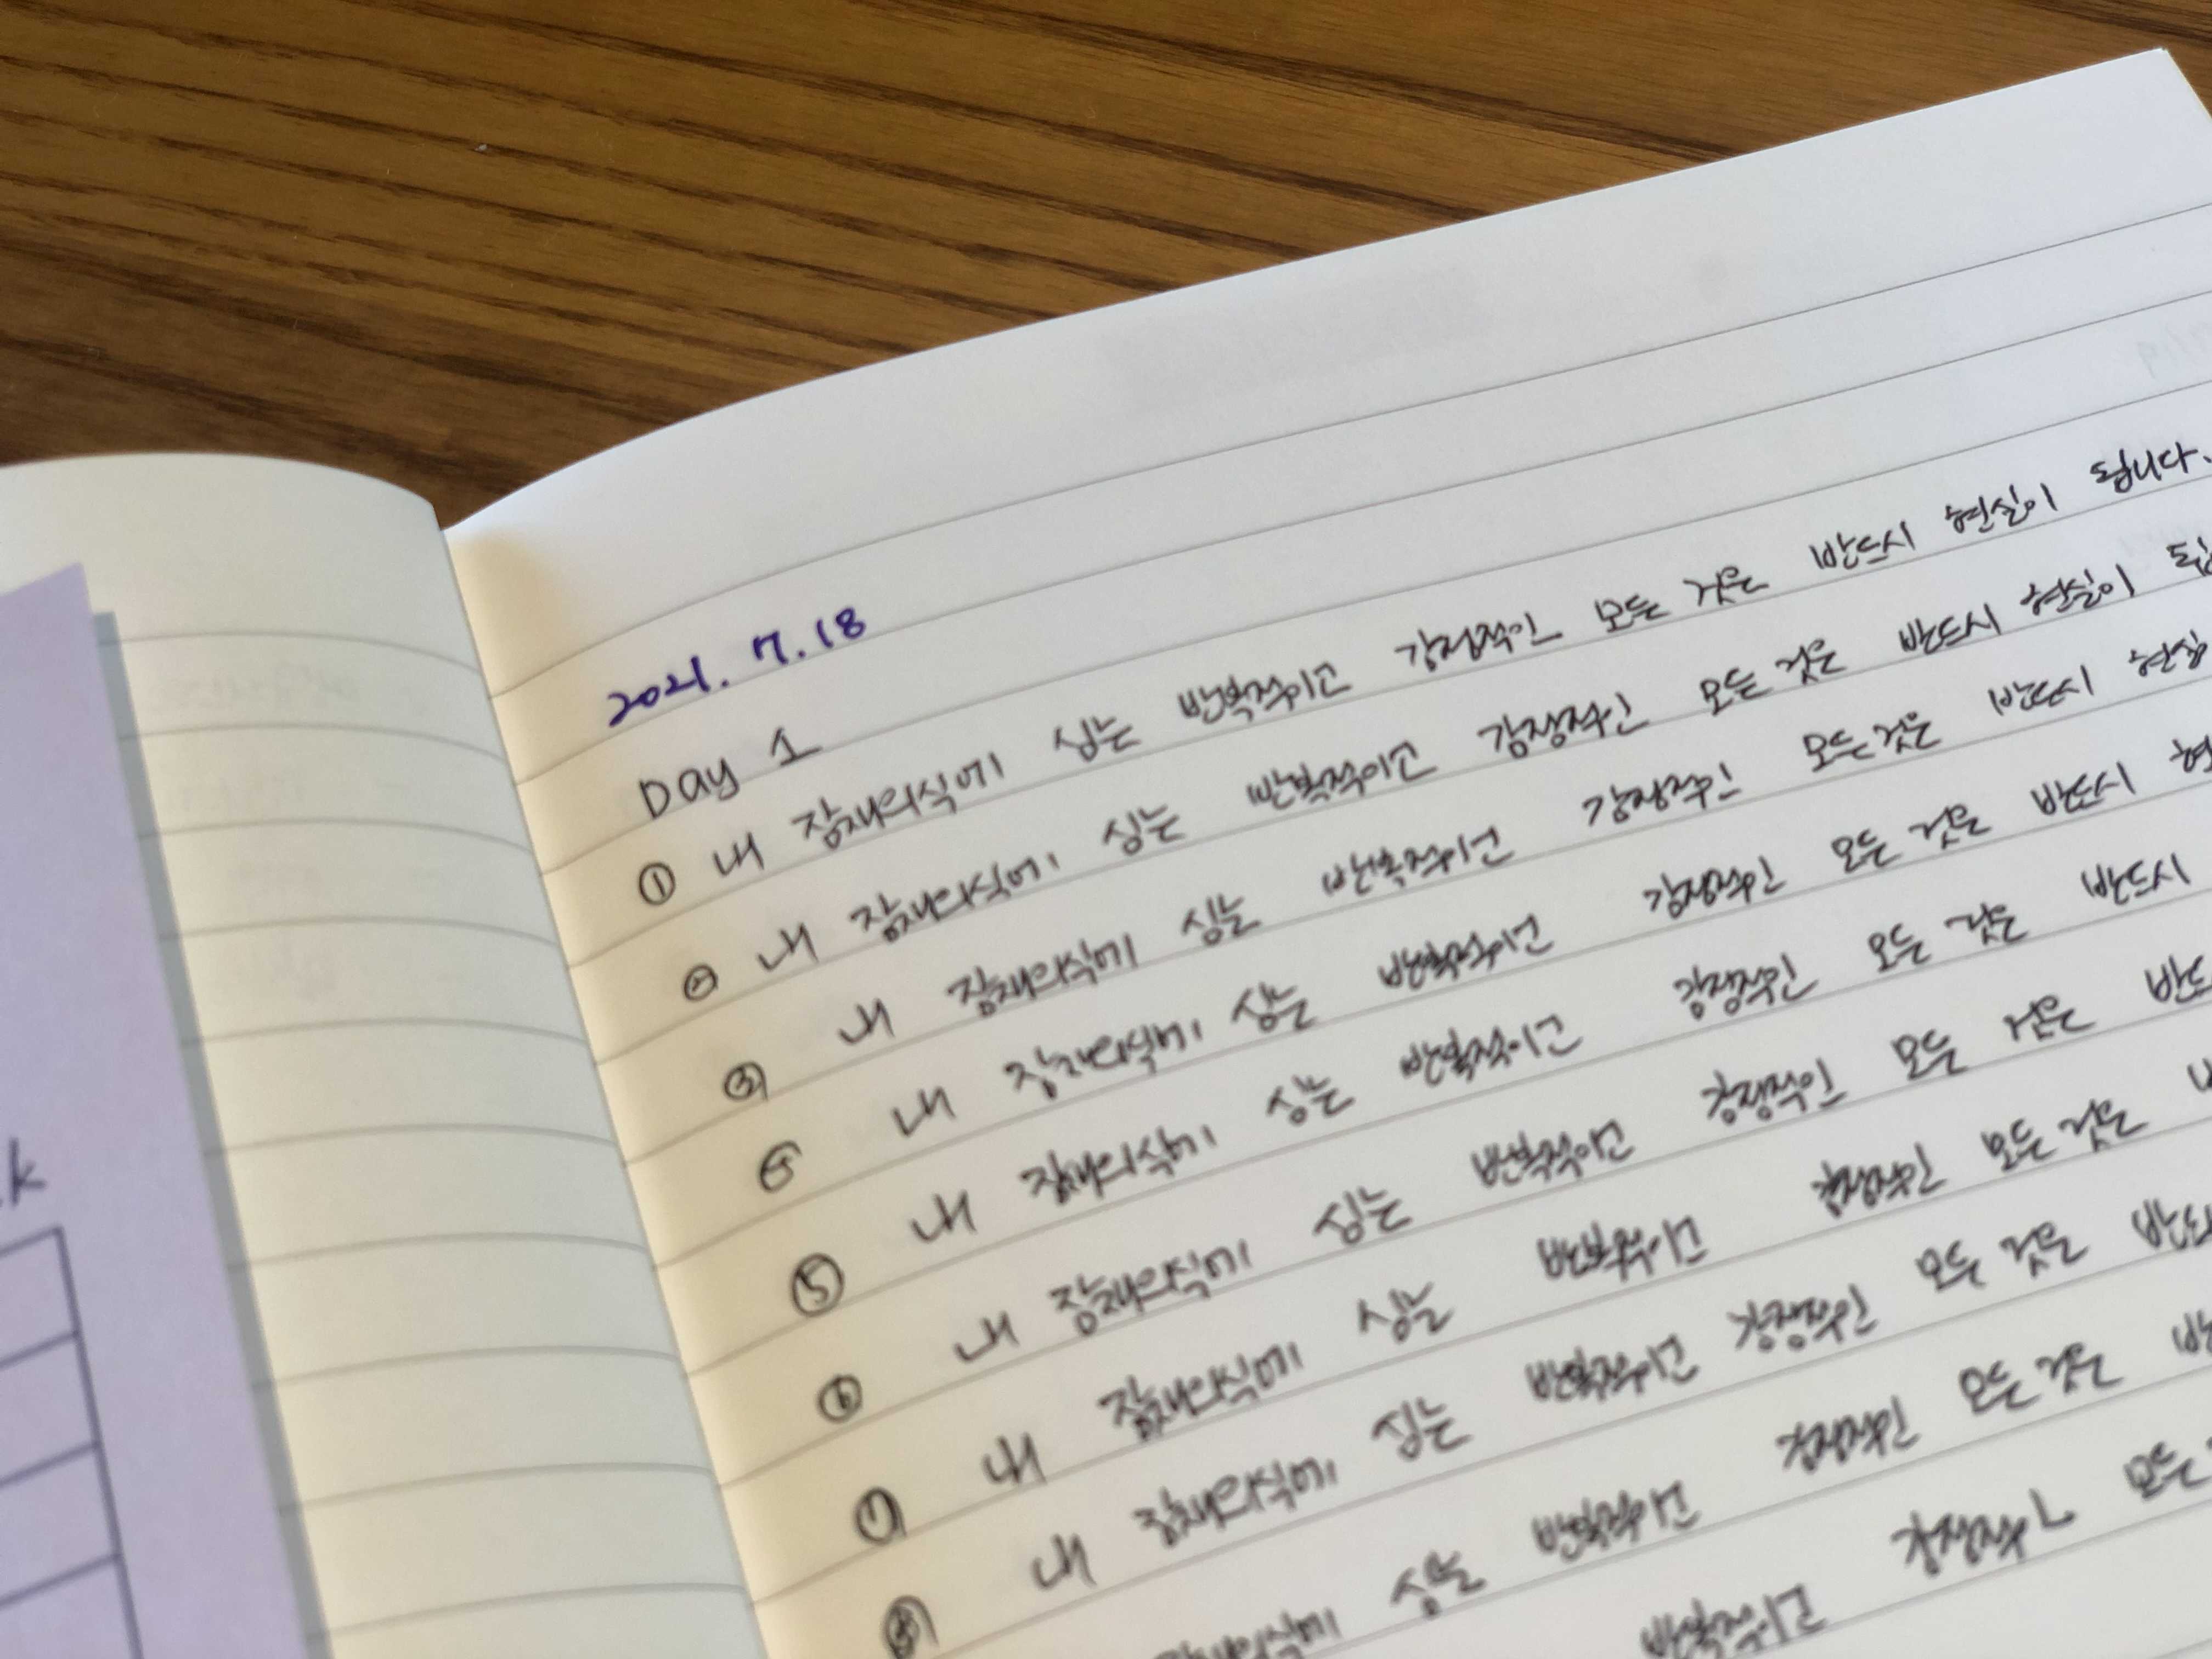 2021. 7. 18
Day 1
① 내 잠재의식에 심는 반복적이고 감정적인 모든 것은 반드시 현실이 됩니다.
② 내 잠재의식에 심는 반복적이고 감정적인 모든 것은 반드시 현실이 됩
③ 내 잠재의식에 심는 반복적이고 감정적인 모든 것은 반드시 현실
④ 내 잠재의식에 심는 반복적이고 감정적인 모든 것은 반드시 현
⑤ 내 잠재의식에 심는 반복적이고 감정적인 모든 것은 반드시
⑥ 내 잠재의식에 심는 반복적이고 감정적인 모든 것은 반드
⑦ 내 잠재의식에 심는 반복적이고 감정적인 모든 것은
⑧ 내 잠재의식에 심는 반복적이고 감정적인 모든 것은 반드
잠재의식에 심는 반복적이고 감정적인 모든 것은 반
반복적이고 감정적인 모든
k